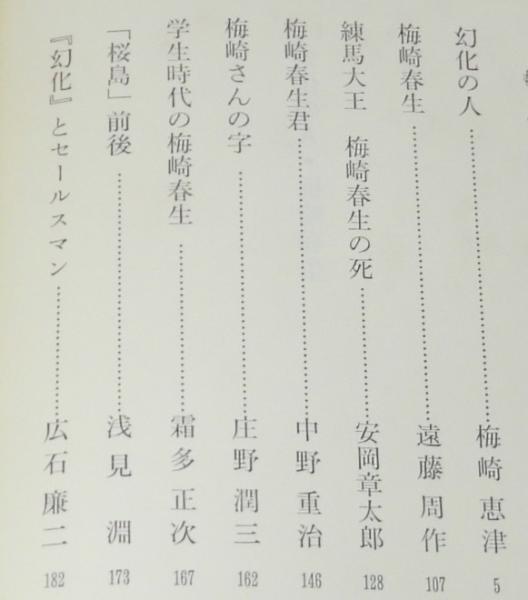 幻化の人……………………梅崎恵津 5
梅崎春生……………………遠藤周作 107
練馬大王 梅崎春生の死……………安岡章太郎 128
梅崎春生君……………………中野重治 146
梅崎さんの字……………………庄野潤三 162
学生時代の梅崎春生……………霜多正次 167
「桜島」前後……………………浅見 淵 173
『幻化』とセールスマン……………広石廉二 182